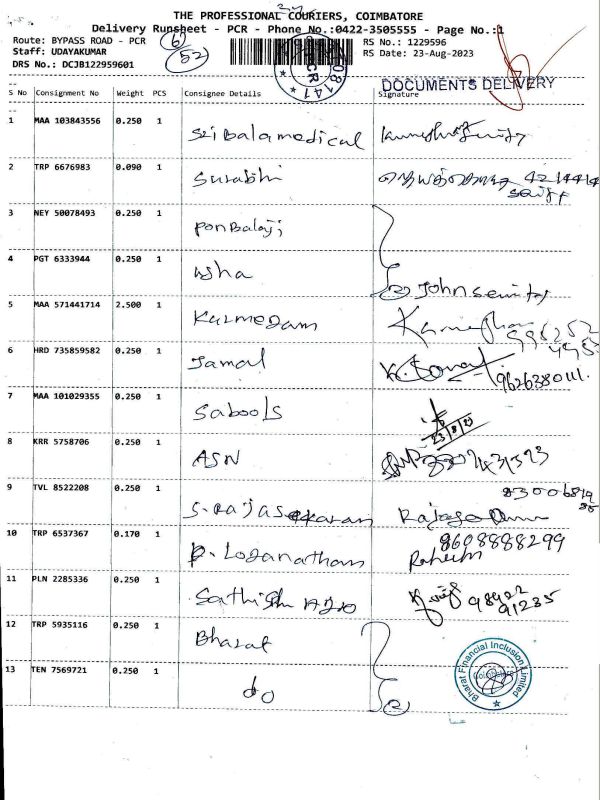 THE PROFESSIONAL COURIERS, COIMBATORE
Delivery Runsheet - PCR - Phone No.:0422-3505555 - Page No.:1
Route: BYPASS ROAD - PCR
RS No.: 1229596
Staff: UDAYAKUMAR
52
RS Date: 23-Aug-2023
DRS No.: DCJB122959601
DOCUMENTS DELIVERY
S No Consignment No Weight PCS Consignee Details Signature
1 MAA 103843556 0.250 1 Sri Balamedical
2 TRP 6676983 0.090 1 Surabhi 4214414
3 NEY 50078493 0.250 1 Pon Balaji
4 PGT 6333944 0.250 1 usha John Security
5 MAA 571441714 2.500 1
6 HRD 735859582 0.250 1 Jamal
9626380111.
7 MAA 101029355 0.250 1 Sabools
23/8/23
8 KRR 5758706 0.250 1 ASN
9 TVL 8522208 0.250 1 S. Rajasekaran
10 TRP 6537367 0.170 1 P. Loganathan 8608888299
11 PLN 2285336 0.250 1 98422
91235
12 TRP 5935116 0.250 1 Bharat
Bharat Financial Inclusion Limited
Coimbatore
13 TEN 7569721 0.250 1 do
2